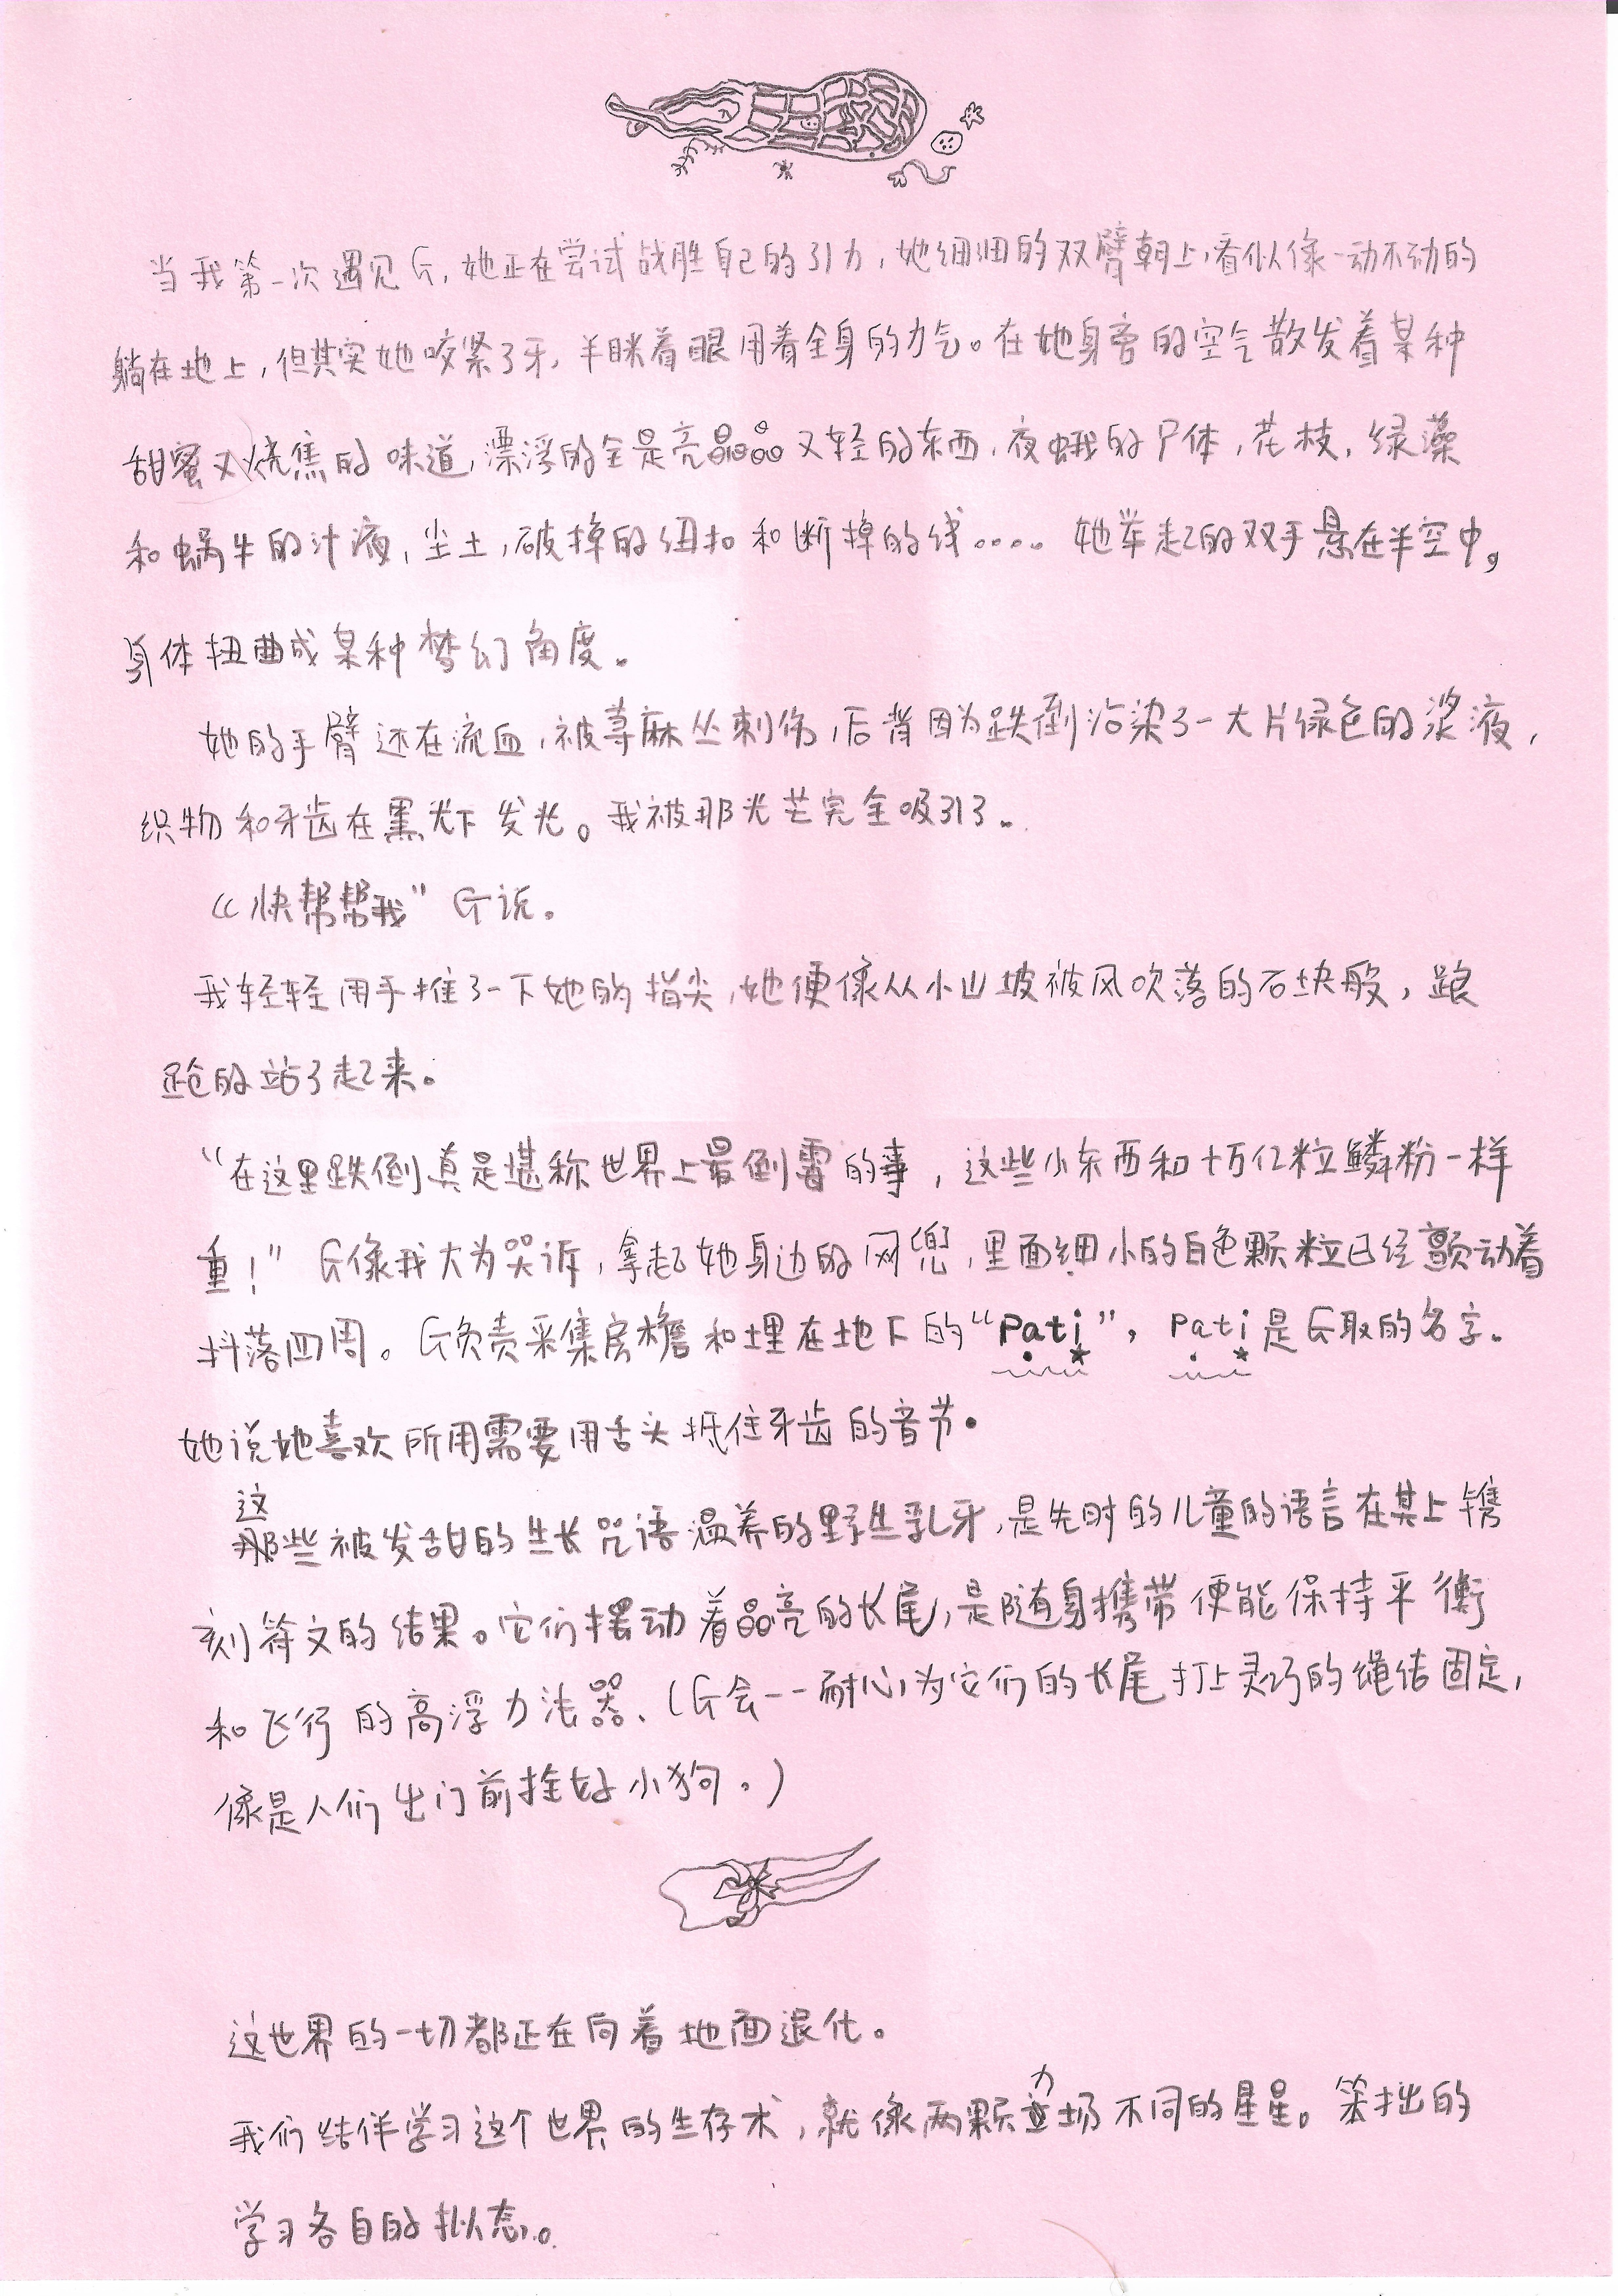 当我第一次遇见G,她正在尝试战胜自己的引力,她细细的双臂朝上,看似像一动不动的
躺在地上,但其实她咬紧了牙,半眯着眼用着全身的力气。在她身旁的空气散发着某种
甜蜜又烧焦的味道,漂浮的全是亮晶晶又轻的东西,夜蛾的尸体,花枝,绿藻
和蜗牛的汁液,尘土,破掉的纽扣和断掉的线.... 她举起的双手悬在半空中,
身体扭曲成某种梦幻角度。
她的手臂还在流血,被荨麻丛刺伤,后背因为跌倒沾染了一大片绿色的浆液,
织物和牙齿在黑光下发光。我被那光芒完全吸引了。
“快帮帮我”G说。
我轻轻用手推了一下她的指尖,她便像从小山坡被风吹落的石块般,踉
跄的站了起来。
“在这里跌倒真是堪称世界上最倒霉的事,这些小东西和十万亿粒鳞粉一样
重!”G像我大为哭诉,拿起她身边的网兜,里面细小的白色颗粒已经颤动着
抖落四周。G负责采集房檐和埋在地下的“Pati”,Pati是G取的名字。
她说她喜欢所用需要用舌头抵住牙齿的音节。
这些被发甜的生长咒语温养的野生乳牙,是先时的儿童的语言在其上镌
刻符文的结果。它们摆动着晶亮的长尾,是随身携带便能保持平衡
和飞行的高浮力法器、(G会一一耐心为它们的长尾打上灵巧的绳结固定,
像是人们出门前拴好小狗。)
这世界的一切都正在向着地面退化。
我们结伴学习这个世界的生存术,就像两颗力场不同的星星。笨拙的
学习各自的拟态。